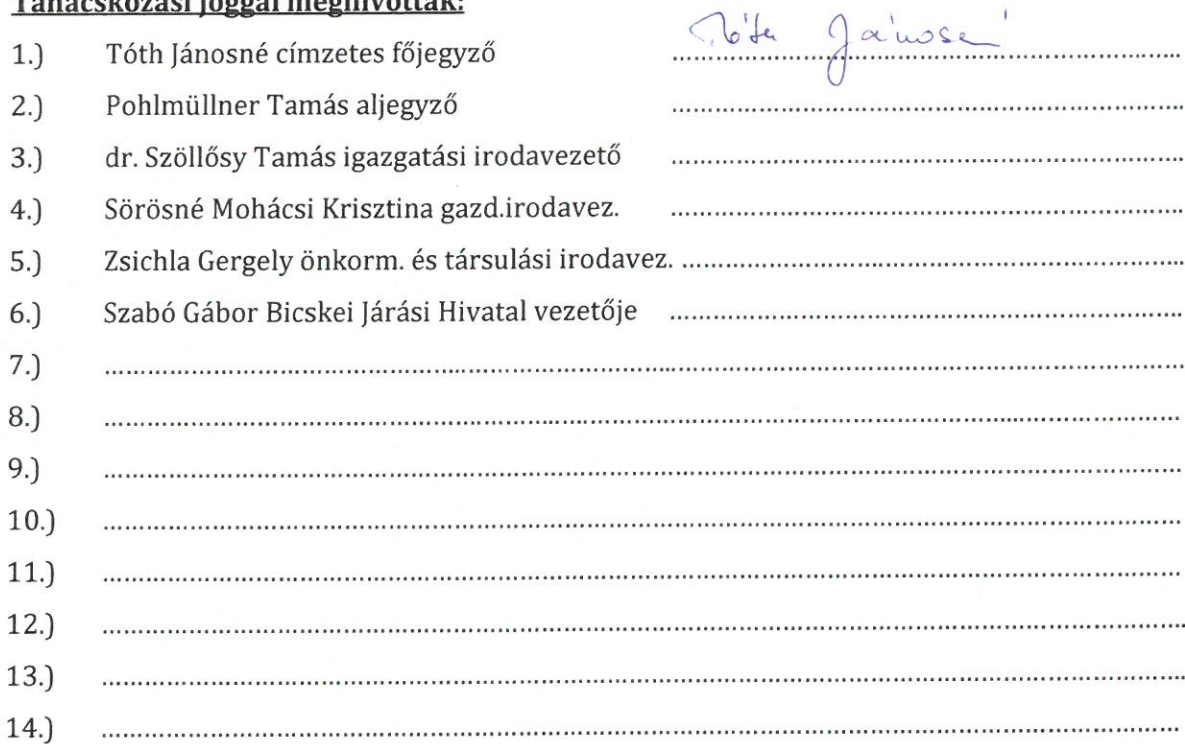 Tanácskozási joggal meghívottak:
1.) Tóth Jánosné címzetes főjegyző Tóth Jánosné
2.) Pohlmüllner Tamás aljegyző
3.) dr. Szöllősy Tamás igazgatási irodavezető
4.) Sörösné Mohácsi Krisztina gazd.irodavez.
5.) Zsichla Gergely önkorm. és társulási irodavez.
6.) Szabó Gábor Bicskei Járási Hivatal vezetője
7.)
8.)
9.)
10.)
11.)
12.)
13.)
14.)